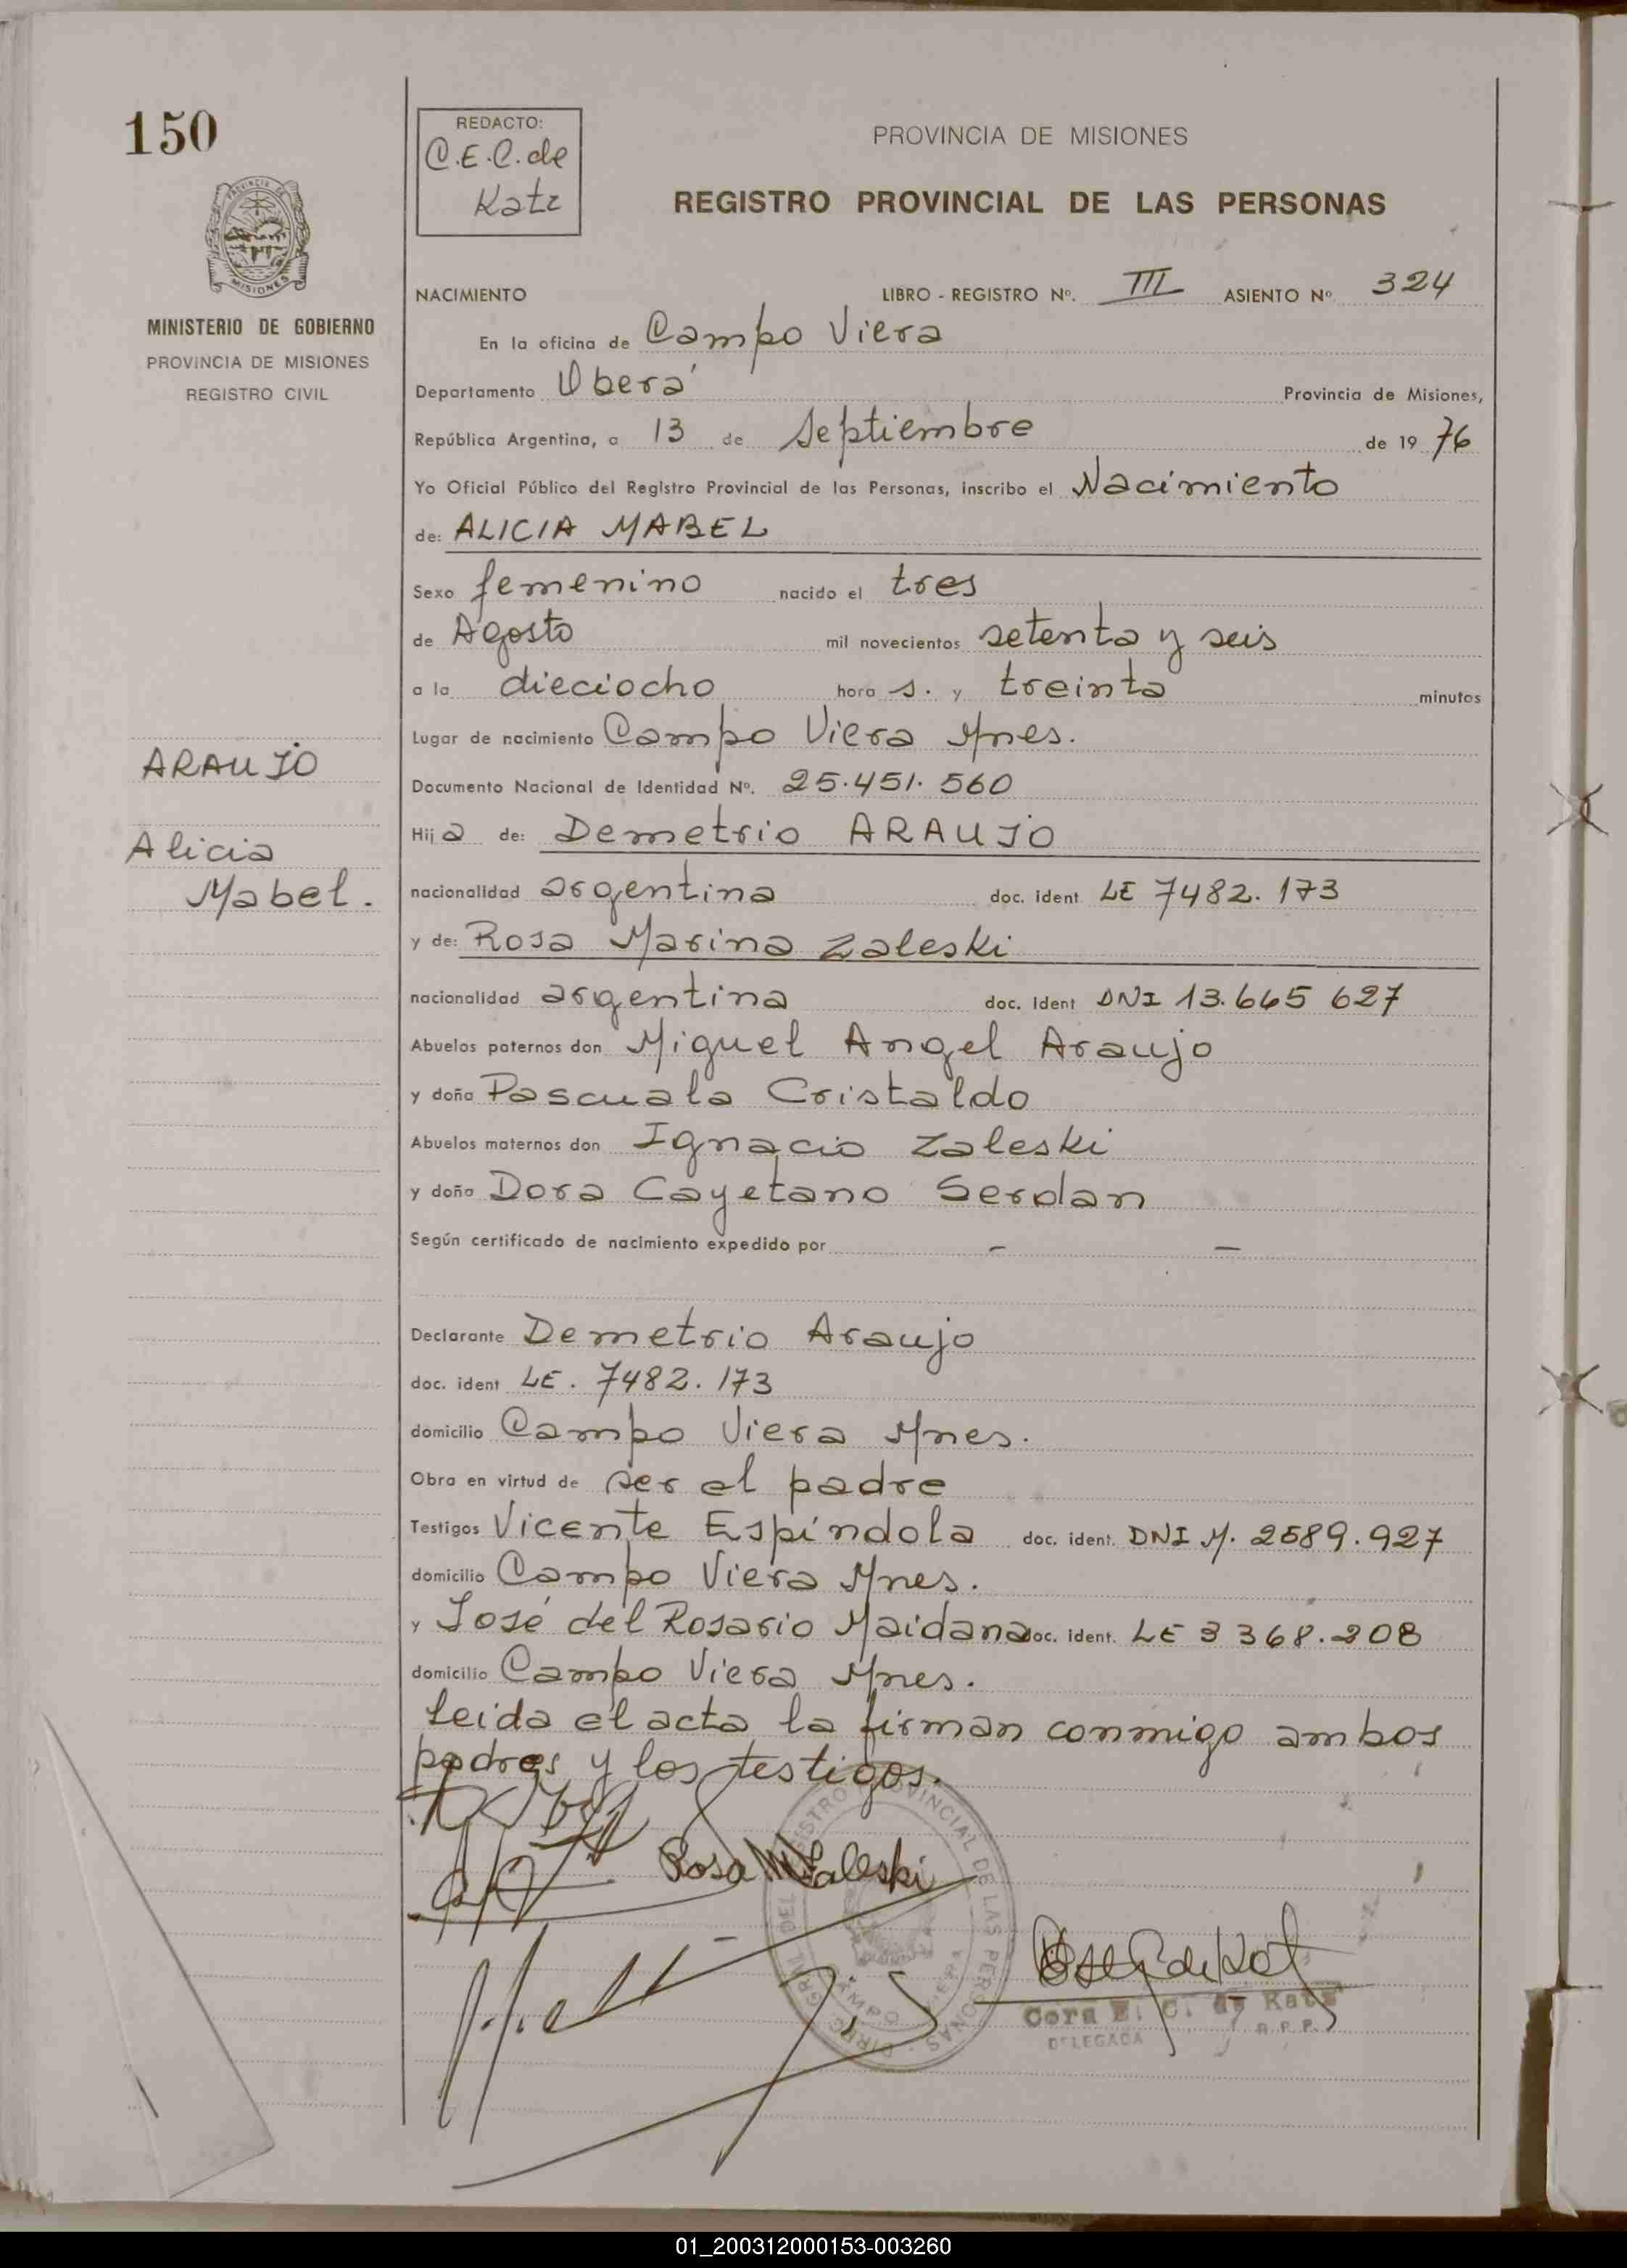 150
REDACTO:
C.E.C. de
Katz
PROVINCIA DE MISIONES
REGISTRO PROVINCIAL DE LAS PERSONAS
PROVINCIA DE
MISIONES
MINISTERIO DE GOBIERNO
PROVINCIA DE MISIONES
REGISTRO CIVIL
NACIMIENTO LIBRO - REGISTRO Nº. III ASIENTO Nº 324
En la oficina de Campo Viera
Departamento Oberá Provincia de Misiones,
República Argentina, a 13 de Septiembre de 19 76
Yo Oficial Público del Registro Provincial de las Personas, inscribo el Nacimiento
de: ALICIA MABEL
Sexo femenino nacido el tres
de Agosto mil novecientos setenta y seis
a la dieciocho hora s. y treinta minutos
Lugar de nacimiento Campo Viera Mnes.
ARAUJO
Documento Nacional de Identidad Nº. 25.451.560
Hij a de: Demetrio ARAUJO
Alicia
Mabel.
nacionalidad argentina doc. ident LE 7482.173
y de: Rosa Marina Zaleski
nacionalidad argentina doc. Ident DNI 13.665 627
Abuelos paternos don Miguel Angel Araujo
y doña Pascuala Cristaldo
Abuelos maternos don Ignacio Zaleski
y doña Dora Cayetano Serdan
Según certificado de nacimiento expedido por - -
Declarante Demetrio Araujo
doc. ident LE. 7482.173
domicilio Campo Viera Mnes.
Obra en virtud de ser el padre
Testigos Vicente Espíndola doc. ident. DNI M. 2589.927
domicilio Campo Viera Mnes.
y José del Rosario Maidana doc. ident. LE 3 368.208
domicilio Campo Viera Mnes.
Leida el acta la firman conmigo ambos
padres y los testigos.
Rosa M Zaleski
DIREC. GRAL. DEL REGISTRO PROVINCIAL DE LAS PERSONAS
CAMPO VIERA
Cora E. C. de Katz
DELEGADA R.P.P.
01_200312000153-003260